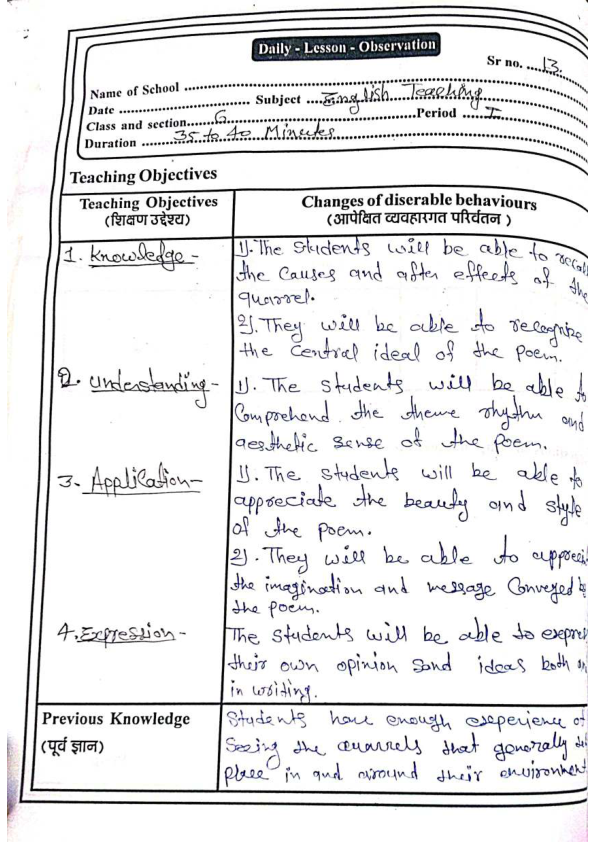 Daily - Lesson - Observation
Sr no. ....13.
Name of School ..........
Date .......... Subject ....English Teaching
Class and section......6..........Period ....I....
Duration ..........35 to 40 Minutes
Teaching Objectives
Teaching Objectives
(शिक्षण उद्देश्य)
Changes of diserable behaviours
(आपेक्षित व्यवहारगत परिर्वतन )
1. Knowledge -
1). The students will be able to recall
the causes and after effects of the
quarrel.
2). They will be able to recognize
the central ideal of the poem.
2. Understanding -
1). The students will be able to
Comprehend the theme rhythm and
aesthetic sense of the poem.
3. Application -
1). The students will be able to
appreciate the beauty and style
of the poem.
2). They will be able to appreci
the imagination and message Conveyed by
the poem.
4. Expression -
The students will be able to
their own opinion sand ideas both
in writing.
Previous Knowledge
(पूर्व ज्ञान)
Students have enough experience of
Seeing the quarrels that generally
place in and around their environment